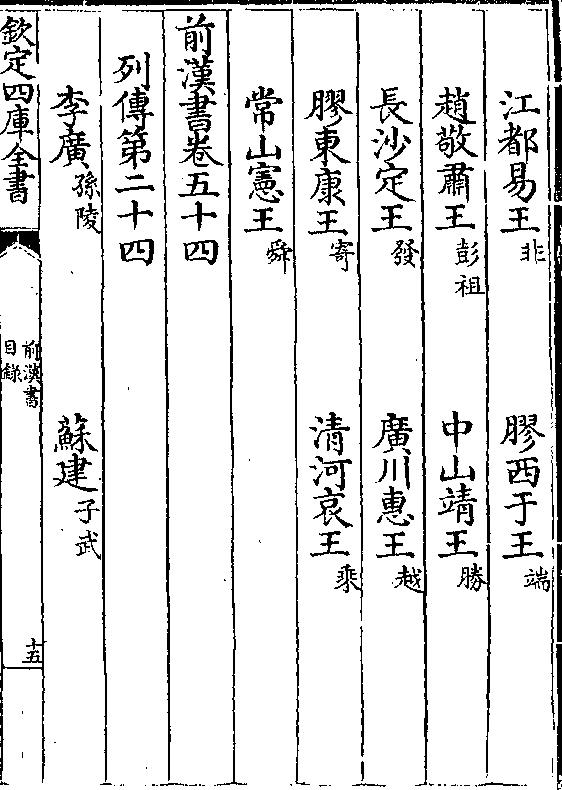 江都易王非　膠西于王端
趙敬肅王彭祖　中山靖王勝
長沙定王發　廣川惠王越
膠東康王寄　清河哀王乘
常山憲王舜
前漢書卷五十四
列傳第二十四
李廣孫陵　蘇建子武
欽定四庫全書
前漢書
目錄
十五